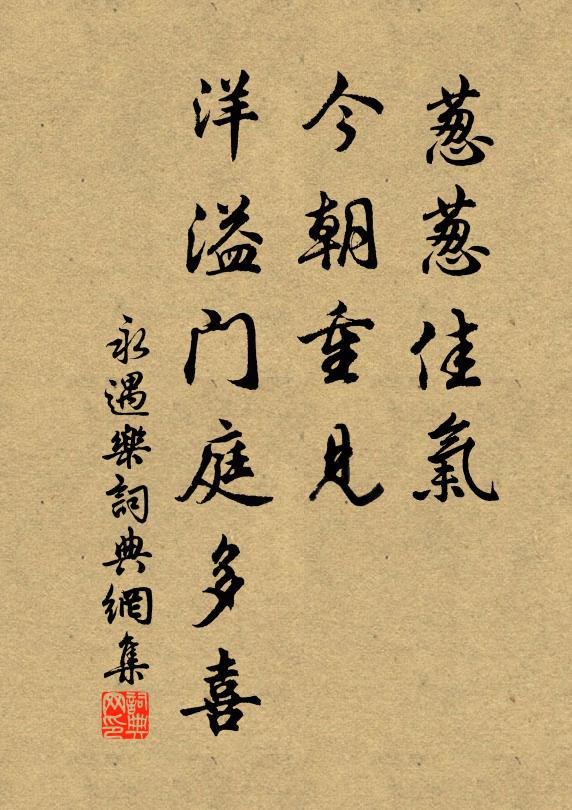 葱葱佳氣
今朝重見
洋溢门庭多喜
永遇樂詞典網集
詞典网印